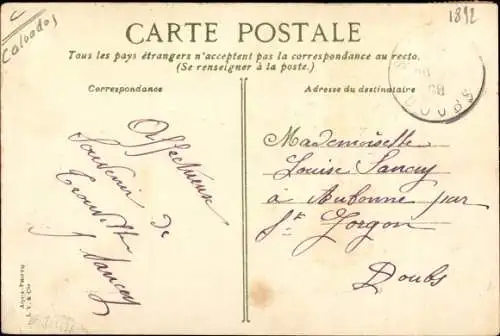 Calvados
1892
CARTE POSTALE
Tous les pays étrangers n'acceptent pas la correspondance au recto.
(Se renseigner à la poste.)
Correspondance
Affectueux
Souvenir de
Trouville
Sancey
Adresse du destinataire
Mademoiselle
Louise Sancey
à Aubonne par
St Gorgon
Doubs
DOUBS
AQUA-PHOTO
L.V. & Cie